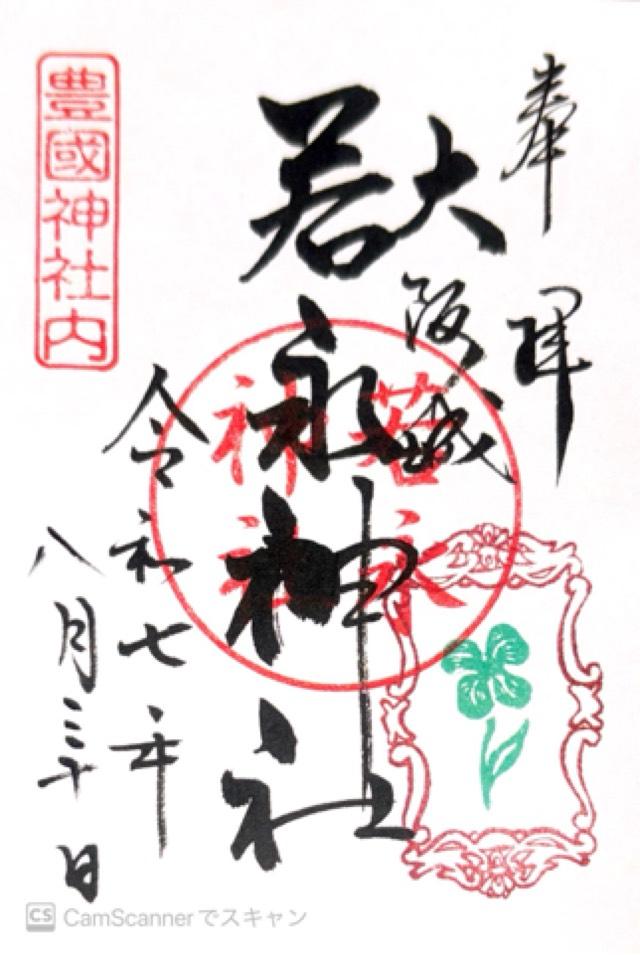 奉拝
大阪城
若永神社
若永神社
令和七年
八月三十日
豊國神社内
CS CamScannerでスキャン